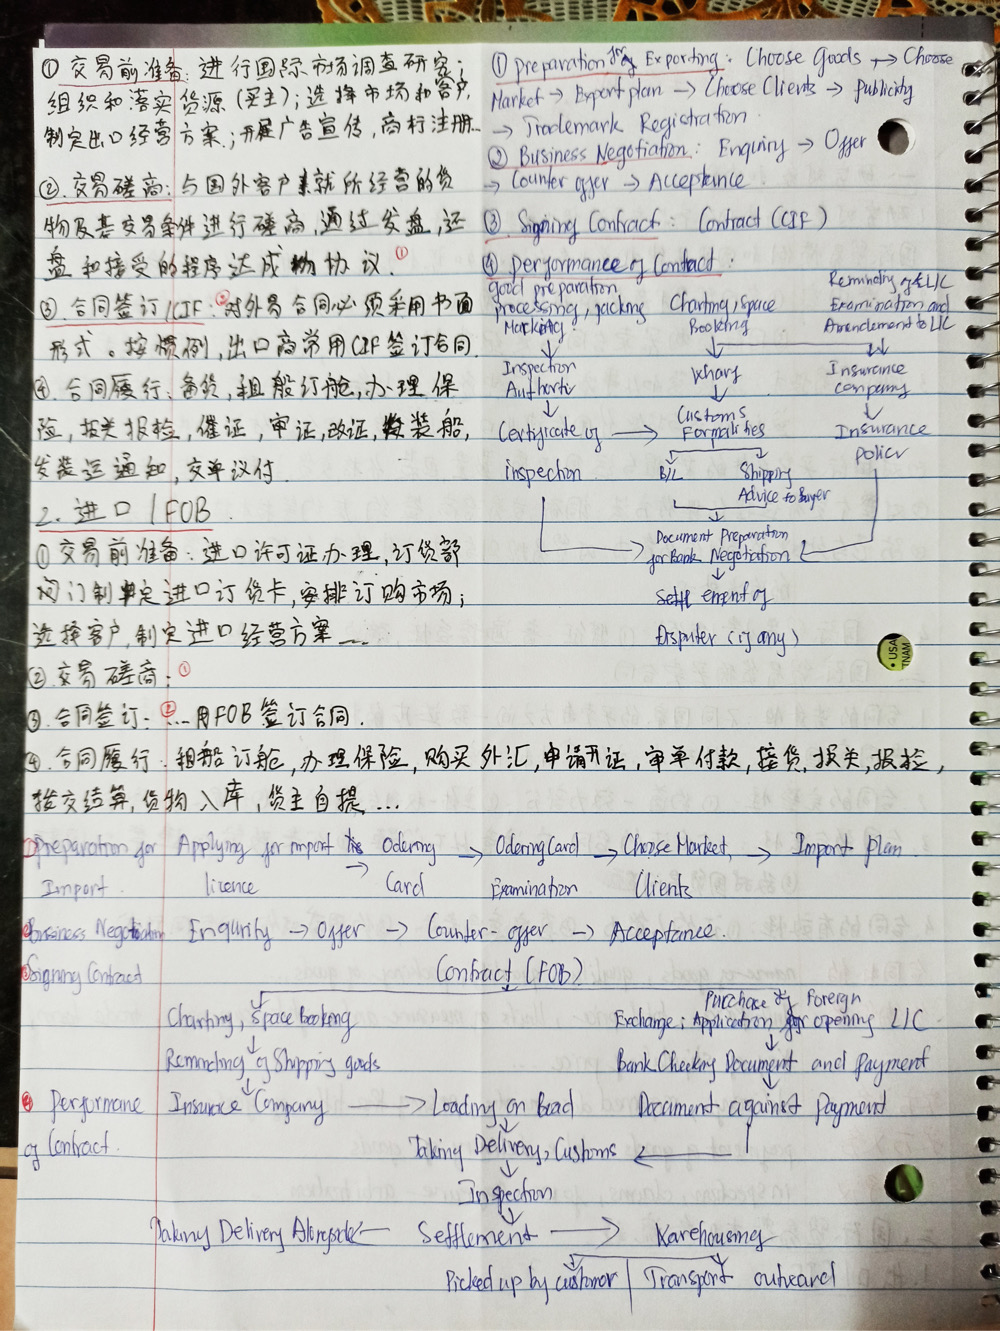 ① 交易前准备: 进行国际市场调查研究;
组织和落实货源(买主); 选择市场和客户,
制定出口经营方案; 开展广告宣传, 商标注册...
②. 交易磋商: 与国外客户就所经营的货
物及其交易条件进行磋商, 通过发盘, 还
盘和接受的程序达成协议. ①
③. 合同签订/CIF: ② 对外易合同必须采用书面
形式。按惯例, 出口商常用CIF签订合同.
④. 合同履行: 备货, 租船订舱, 办理保
险, 报关报检, 催证, 审证, 改证, 装船,
发装运通知, 交单议付.
2. 进口 / FOB.
① 交易前准备: 进口许可证办理, 订货部
门制定进口订货卡, 安排订购市场;
选择客户, 制定进口经营方案......
② 交易磋商: ①
③. 合同签订: ② ... 用FOB签订合同.
④. 合同履行. 租船订舱, 办理保险, 购买外汇, 申请开证, 审单付款, 接货, 报关, 报检,
拨交结算, 货物入库, 货主自提, ...
① Preparation for Exporting: Choose Goods → Choose
Market → Export plan → Choose Clients → Publicity
→ Trademark Registration.
② Business Negotiation: Enquiry → Offer
→ Counter offer → Acceptance.
③ Signing Contract: Contract (CIF)
④ Performance of Contact:
good preparation
processing, packing
Marking
Charting, space
Booking
Reminding of L/C
Examination and
Amendement to L/C
Inspection
Authority
Wharf
Insurance
Company
Certificate of
inspection
Customs
Formalities
Insurance
policy
B/L
Shipping
Advice to Buyer
Document Preparation
for Bank Negotiation
Settlement of
Disputer (if any)
USA
TNAM
① Preparation for
Import.
Applying for import
licence
→ Odering
Card
→ Odering Card
Examination
→ Choose Market,
Clients
→ Import plan.
② Business Negotiation Enqurity → Offer → Counter-offer → Acceptance.
③ Signing Contract Contract (FOB)
Charting, Space Booking
Purchase of Foreign
Exchange; Application for opening L/C
Reminding of Shipping goods
Bank Checking Document and Payment
④ Performane
of Contract.
Insurce Company → Loading on Boad
Document against Payment
Taking Delivery, Customs
Inspection
Taking Delivery Alongside ← Settlement → Warehousing
Picked up by customor | Transport outward